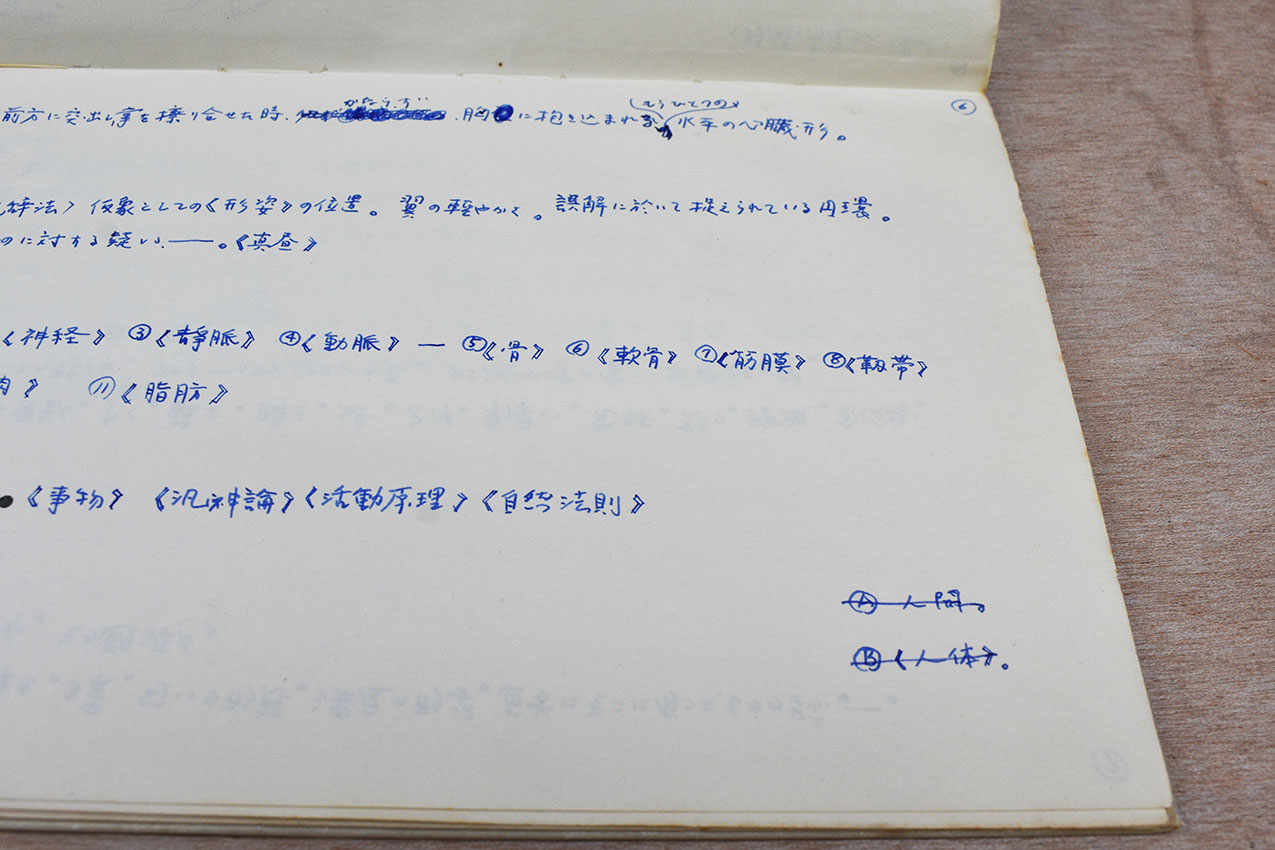 ⑥
前方に突出し掌を擦り合せた時、かならず、胸に抱き込まれる（もうひとつの）水平の心臓形。
辞法〉仮象としての《形姿》の位置。翼の軽やかさ。誤解に於いて捉えられている円環。
のに対する疑い、──。《真昼》
《神経》 ③《静脈》 ④《動脈》 — ⑤《骨》 ⑥《軟骨》 ⑦《筋膜》 ⑧《靱帯》
肉》 ⑪《脂肪》
●《事物》 《汎神論》《活動原理》《自然法則》
Ⓐ 人間。
Ⓑ《人体》。